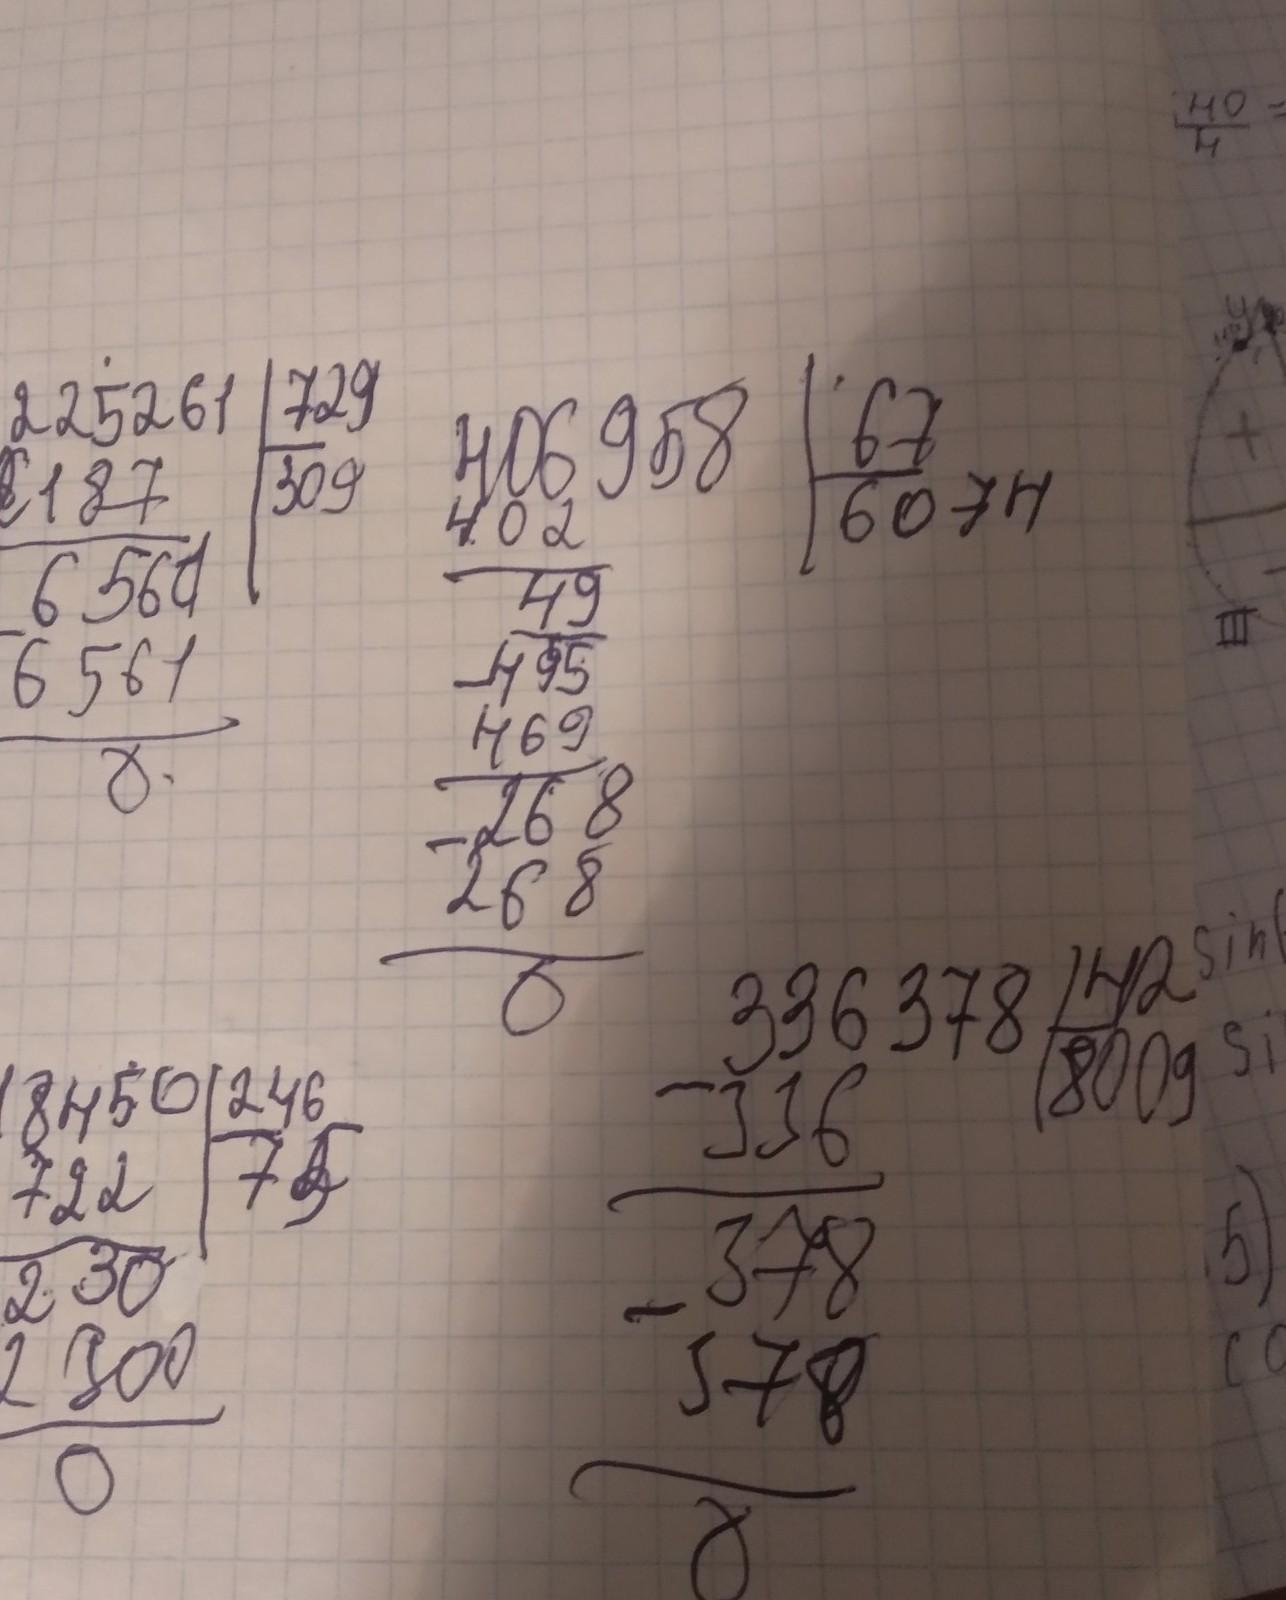 225261 729
2187 309
6561
- 6561
0.
406958 67
402 6074
49
- 495
469
268
- 268
0
18450 246
722 75
230
2300
0
336378 42
- 336 8009
378
- 378
0
40
4
+
III
sin(
si
5)
(0